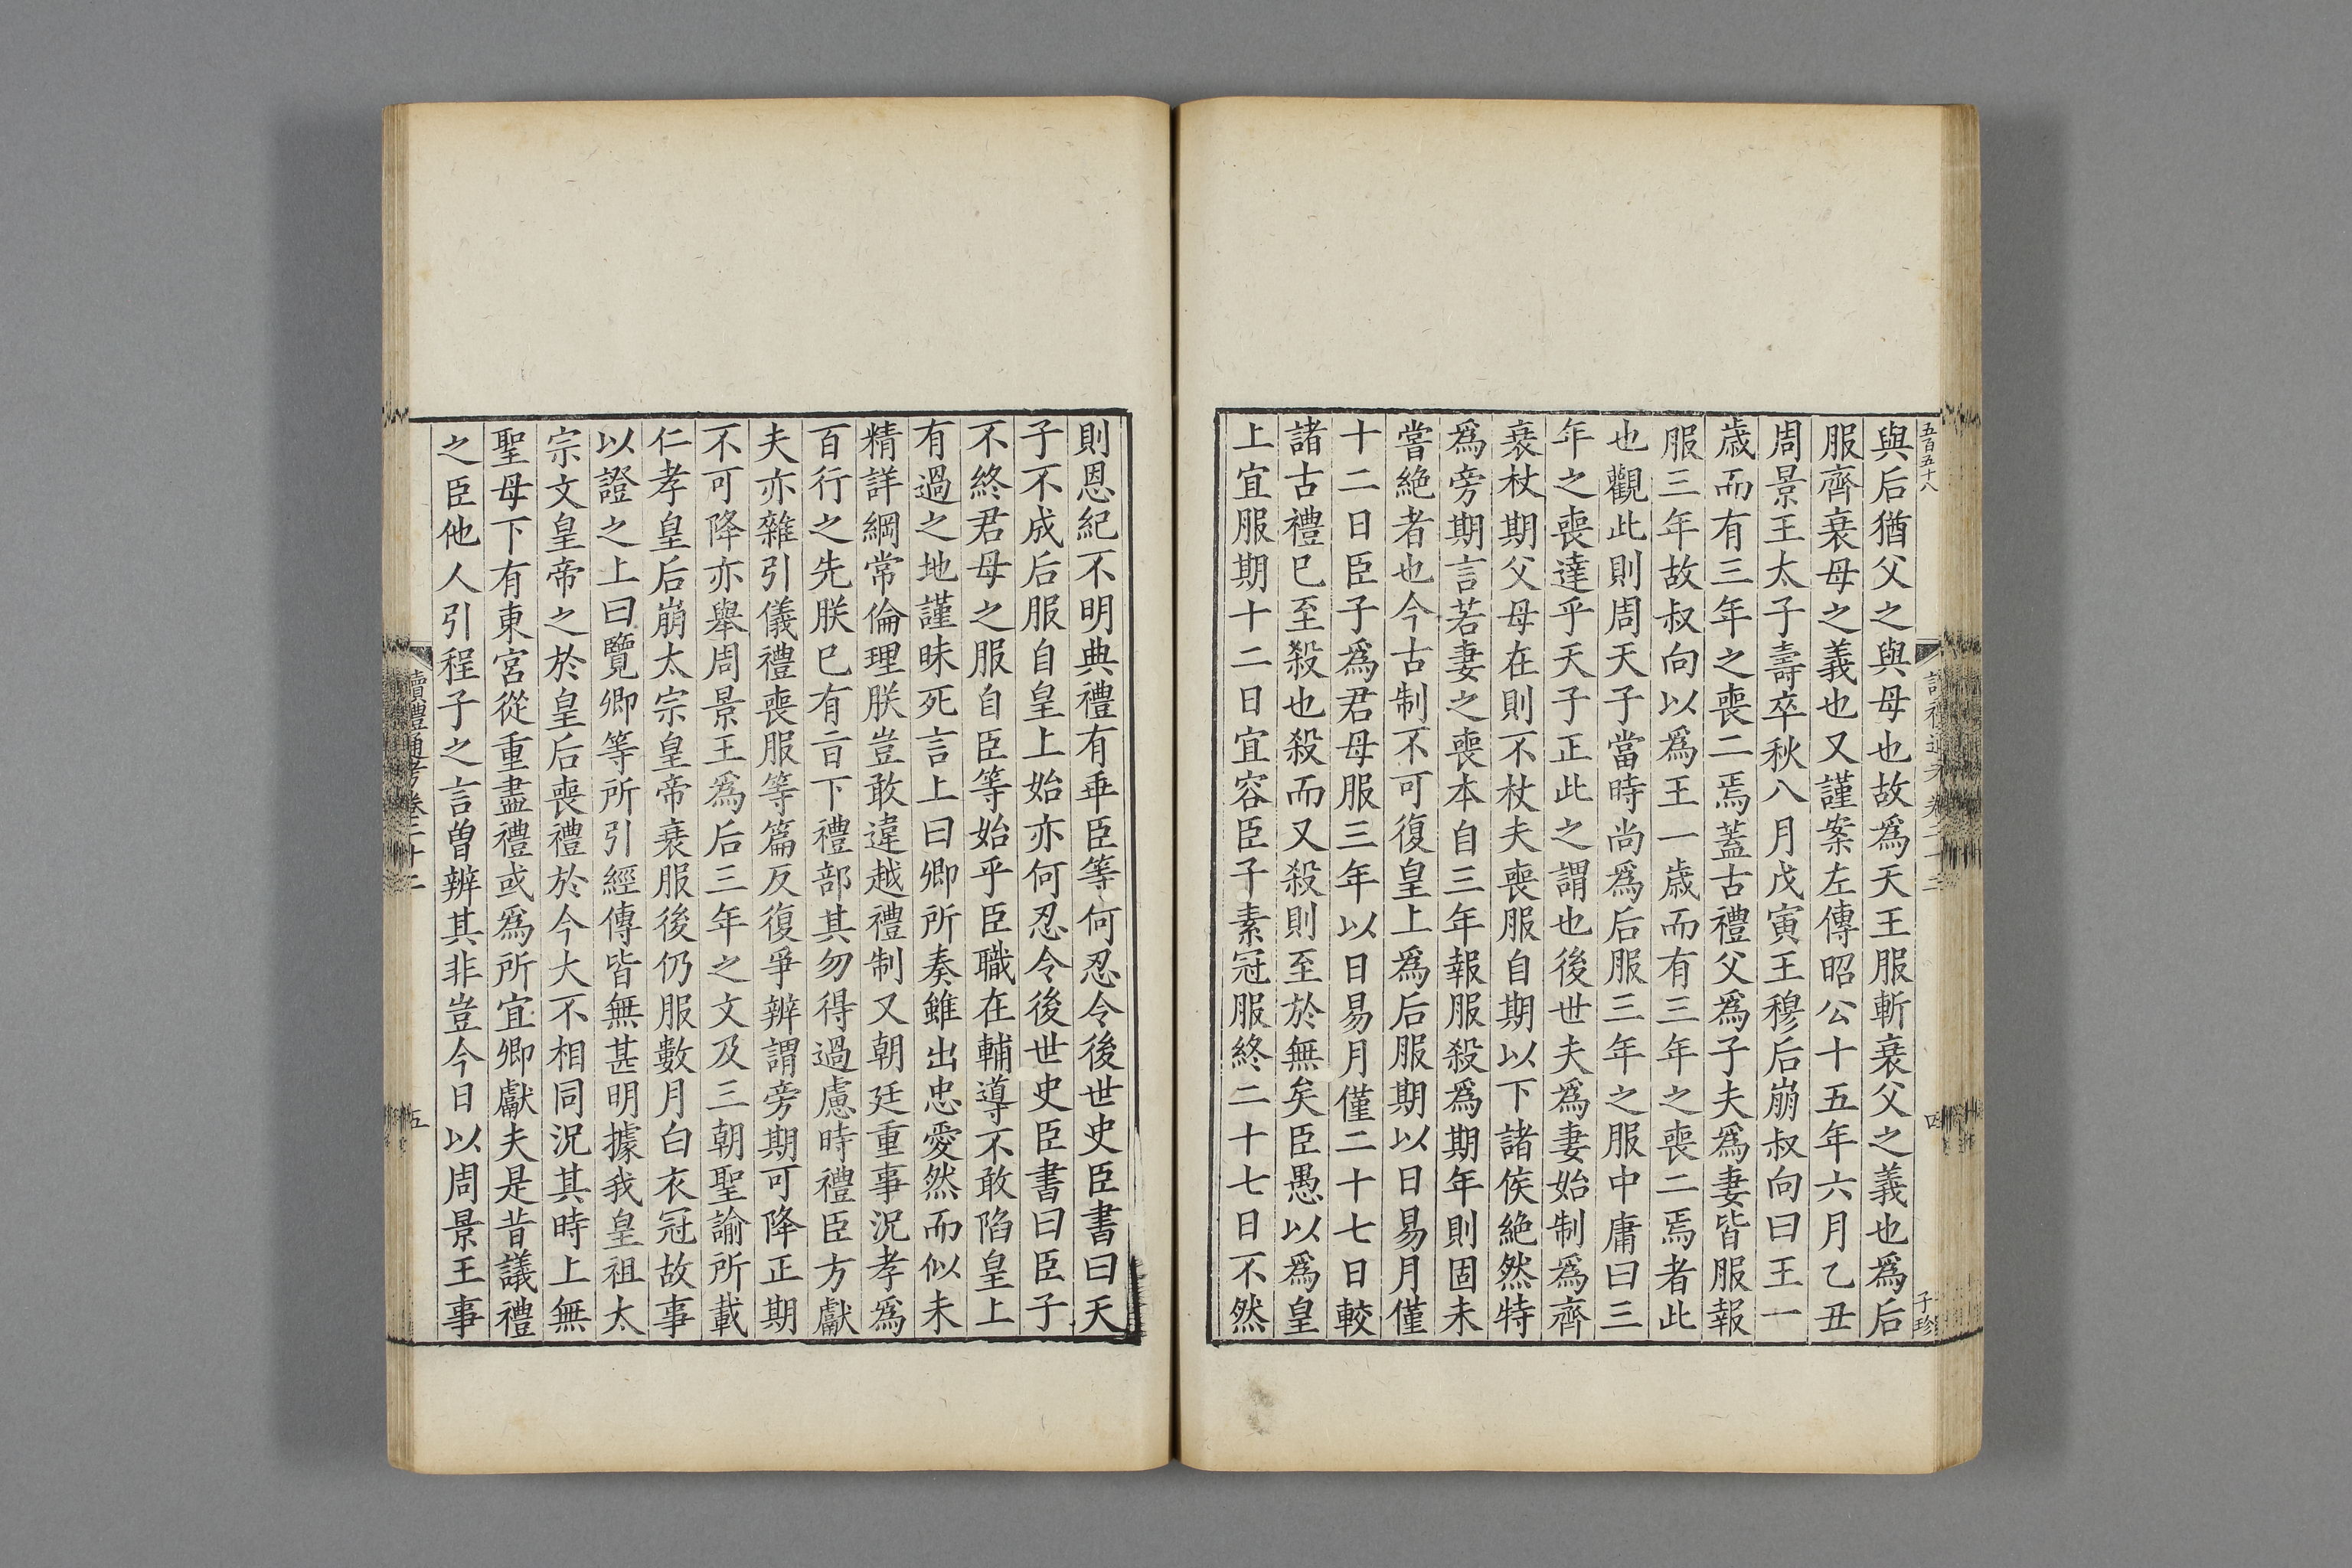 五百五十八
四
子珍
與后猶父之與母也故爲天王服斬衰父之義也爲后
服齊衰母之義也又謹案左傳昭公十五年六月乙丑
周景王太子壽卒秋八月戊寅王穆后崩叔向曰王一
歳而有三年之喪二焉蓋古禮父爲子夫爲妻皆服報
服三年故叔向以爲王一歳而有三年之喪二焉者此
也觀此則周天子當時尚爲后服三年之服中庸曰三
年之喪達乎天子正此之謂也後世夫爲妻始制爲齊
衰杖期父母在則不杖夫喪服自期以下諸侯絶然特
爲旁期言若妻之喪本自三年報服殺爲期年則固未
嘗絶者也今古制不可復皇上爲后服期以日易月僅
十二日臣子爲君母服三年以日易月僅二十七日較
諸古禮已至殺也殺而又殺則至於無矣臣愚以爲皇
上宜服期十二日宜容臣子素冠服終二十七日不然
則恩紀不明典禮有垂臣等何忍令後世史臣書曰天
子不成后服自皇上始亦何忍令後世史臣書曰臣子
不終君母之服自臣等始乎臣職在輔導不敢陷皇上
有過之地謹昧死言上曰卿所奏雖出忠愛然而似未
精詳綱常倫理朕豈敢違越禮制又朝廷重事況孝爲
百行之先朕已有㫖下禮部其勿得過慮時禮臣方獻
夫亦雜引儀禮喪服等篇反復爭辨謂旁期可降正期
不可降亦舉周景王爲后三年之文及三朝聖諭所載
仁孝皇后崩太宗皇帝衰服後仍服數月白衣冠故事
以證之上曰覽卿等所引經傳皆無甚明據我皇祖太
宗文皇帝之於皇后喪禮於今大不相同況其時上無
聖母下有東宮從重盡禮或爲所宜卿獻夫是昔議禮
之臣他人引程子之言曾辨其非豈今日以周景王事
讀禮通考卷二十二
五